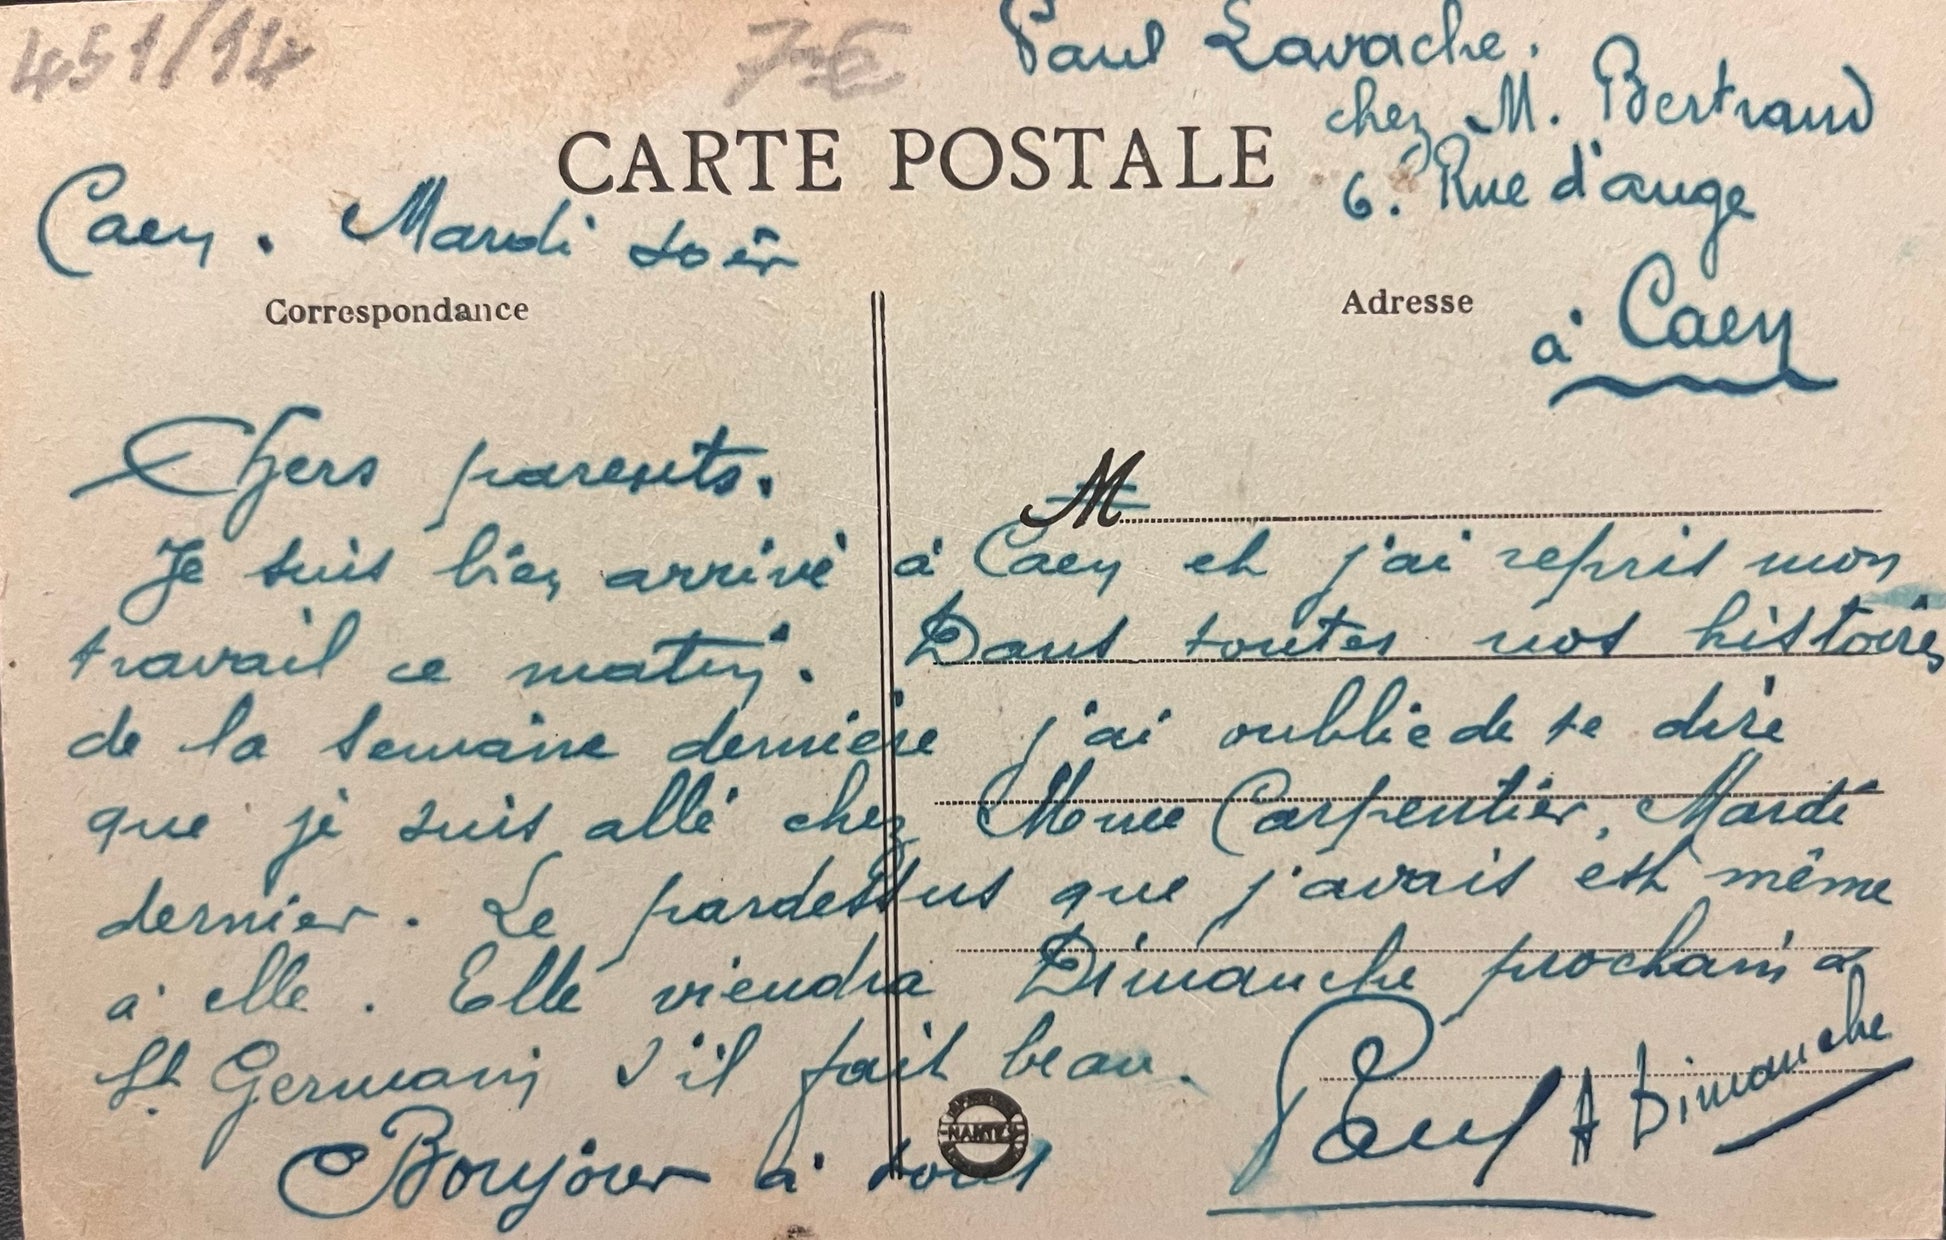 451/14
7 €
Paul Lavache.
chez M. Bertrand
6. Rue d'auge
à Caen
CARTE POSTALE
Caen. Mardi soir
Correspondance
Adresse
Chers parents.
M
Je suis bien arrivé à Caen et j'ai repris mon
travail ce matin. Dans toutes nos histoires
de la semaine dernière j'ai oublié de te dire
que je suis allé chez Mme Carpentier, Mardi
dernier. Le pardessus que j'avais est même
à elle. Elle viendra Dimanche prochain à
St. Germain s'il fait beau.
Bonjour à tous
Paul
A Dimanche
NANTES